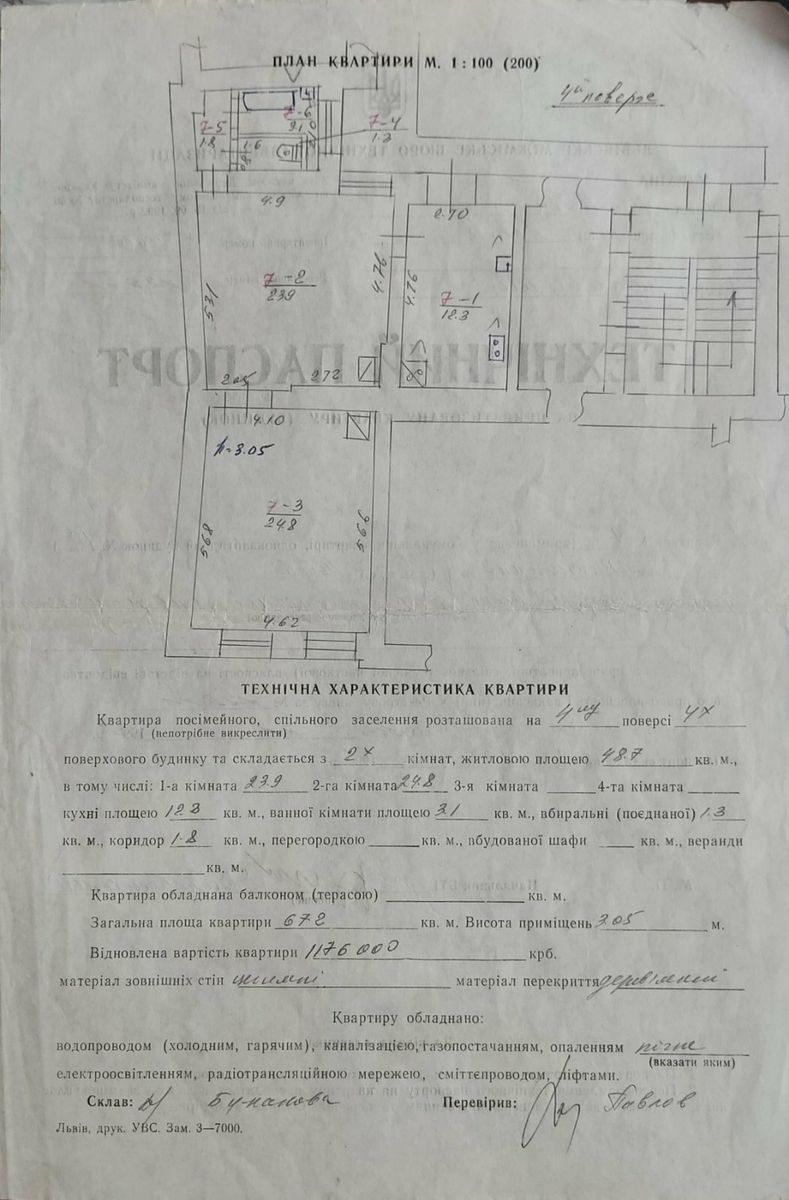 ПЛАН КВАРТИРИ М. 1 : 100 (200)
4й поверх
7-5
1.8
7-6
7-4
1.3
1.6
4.9
2.70
5.31
7-2
23.9
4.76
4.76
7-1
12.3
2.05
2.72
4.10
h-3.05
7-3
24.8
5.68
5.95
4.62
ТЕХНІЧНА ХАРАКТЕРИСТИКА КВАРТИРИ
Квартира посімейного, спільного заселення розташована на 4му поверсі 4х
(непотрібне викреслити)
поверхового будинку та складається з 2х кімнат, житловою площею 48.7 кв. м.,
в тому числі: 1-а кімната 23.9 2-га кімната 24.8 3-я кімната 4-та кімната
кухні площею 12.3 кв. м., ванної кімнати площею 3.1 кв. м., вбиральні (поєднаної) 1.3
кв. м., коридор 1.8 кв. м., перегородкою кв. м., вбудованої шафи кв. м., веранди
кв. м.
Квартира обладнана балконом (терасою) кв. м.
Загальна площа квартири 67.2 кв. м. Висота приміщень 3.05 м.
Відновлена вартість квартири 1176000 крб.
матеріал зовнішніх стін цегляні матеріал перекриття деревляний
Квартиру обладнано:
водопроводом (холодним, гарячим), каналізацією, газопостачанням, опаленням пічне
(вказати яким)
електроосвітленням, радіотрансляційною мережею, сміттєпроводом, ліфтами.
Склав: Перевірив: Павлов
Львів, друк. УВС. Зам. 3—7000.